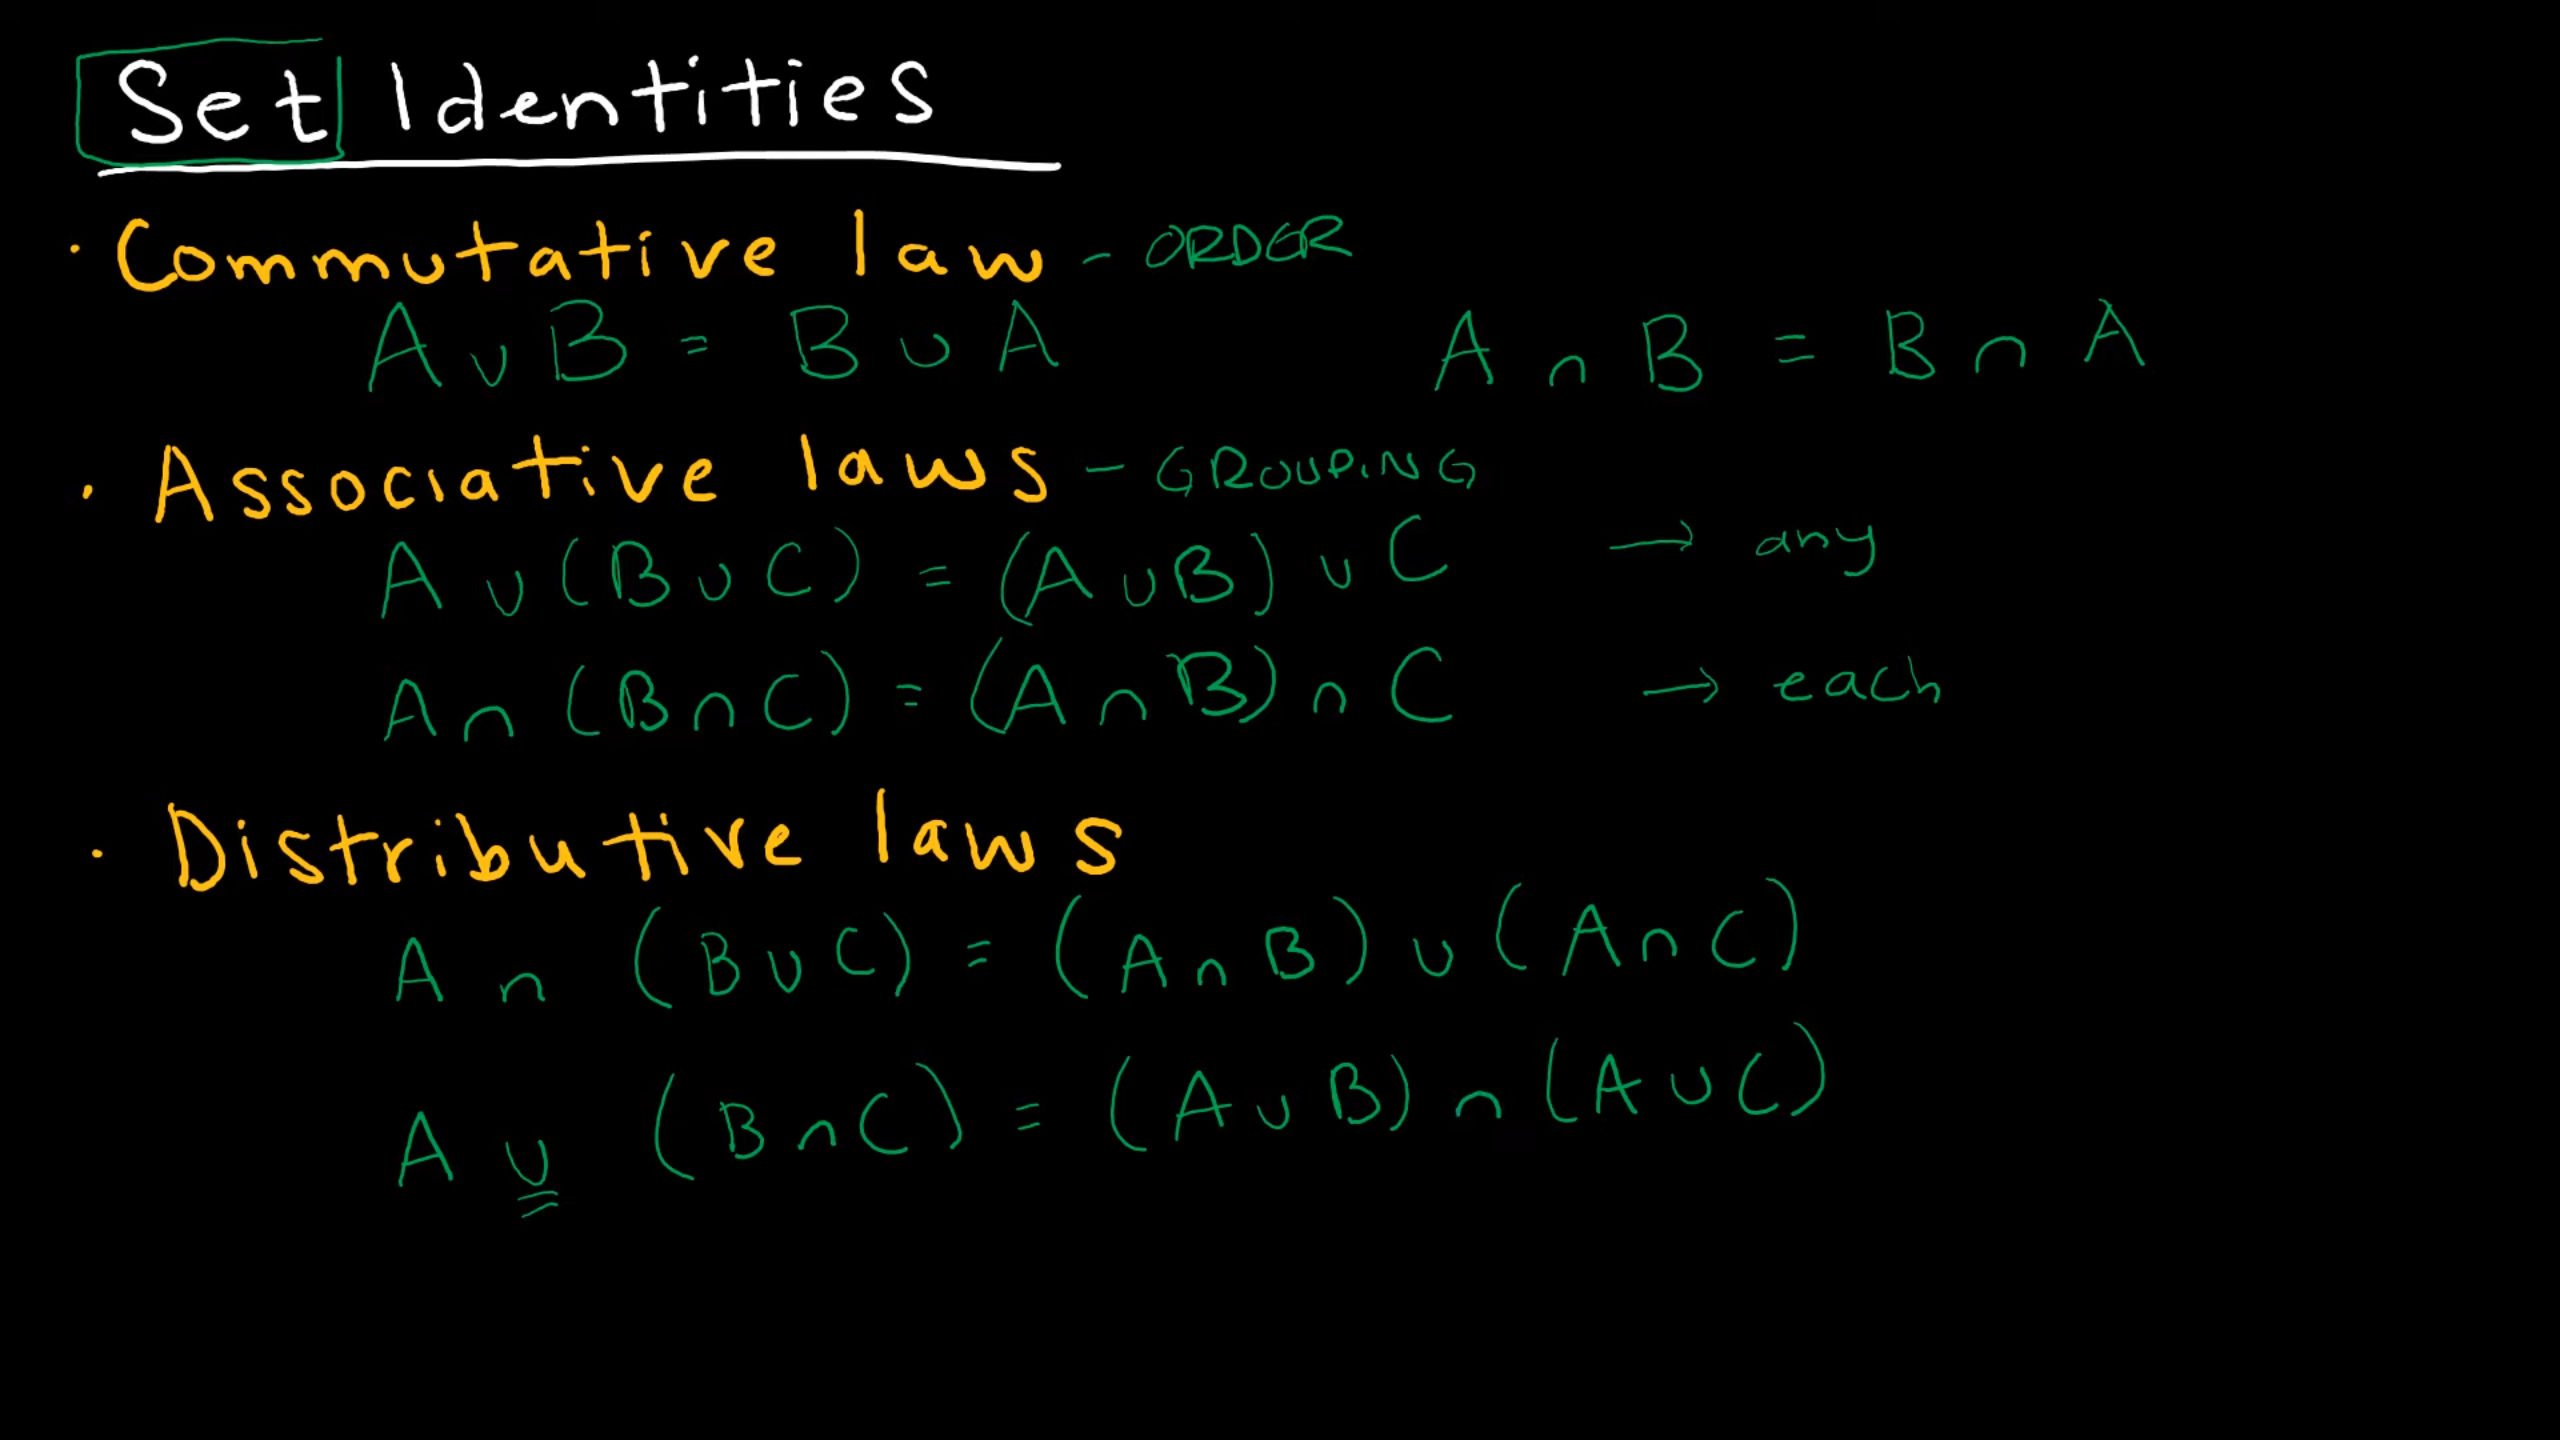 Set Identities
· Commutative law - ORDER
A ∪ B = B ∪ A    A ∩ B = B ∩ A
· Associative laws - GROUPING
A ∪ (B ∪ C) = (A ∪ B) ∪ C → any
A ∩ (B ∩ C) = (A ∩ B) ∩ C → each
· Distributive laws
A ∩ (B ∪ C) = (A ∩ B) ∪ (A ∩ C)
A ∪ (B ∩ C) = (A ∪ B) ∩ (A ∪ C)